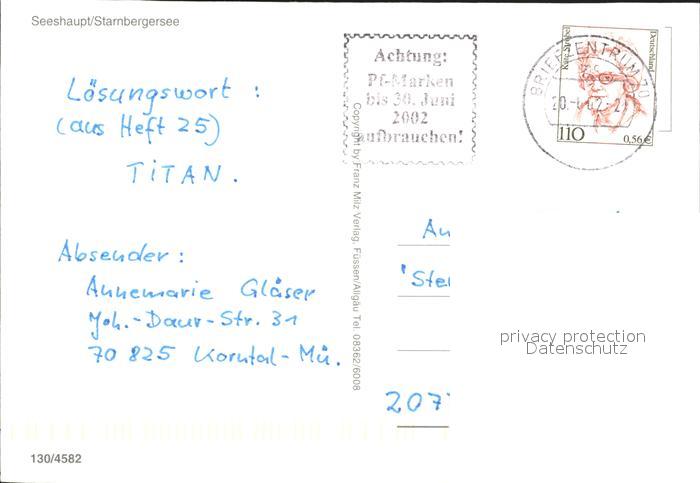 Seeshaupt/Starnbergersee
Achtung:
Pf-Marken
bis 30. Juni
2002
aufbrauchen!
BRIEFZENTRUM 70
Deutschland
110
0,56€
Lösungswort :
(aus Heft 25)
TiTAN.
Absender :
Annemarie Gläser
Joh.-Daur-Str. 31
70 825 Korntal-Mü.
Copyright by Franz Milz Verlag, Füssen/Allgäu Tel. 08362/6008
An
'Ste
207
privacy protection
Datenschutz
130/4582